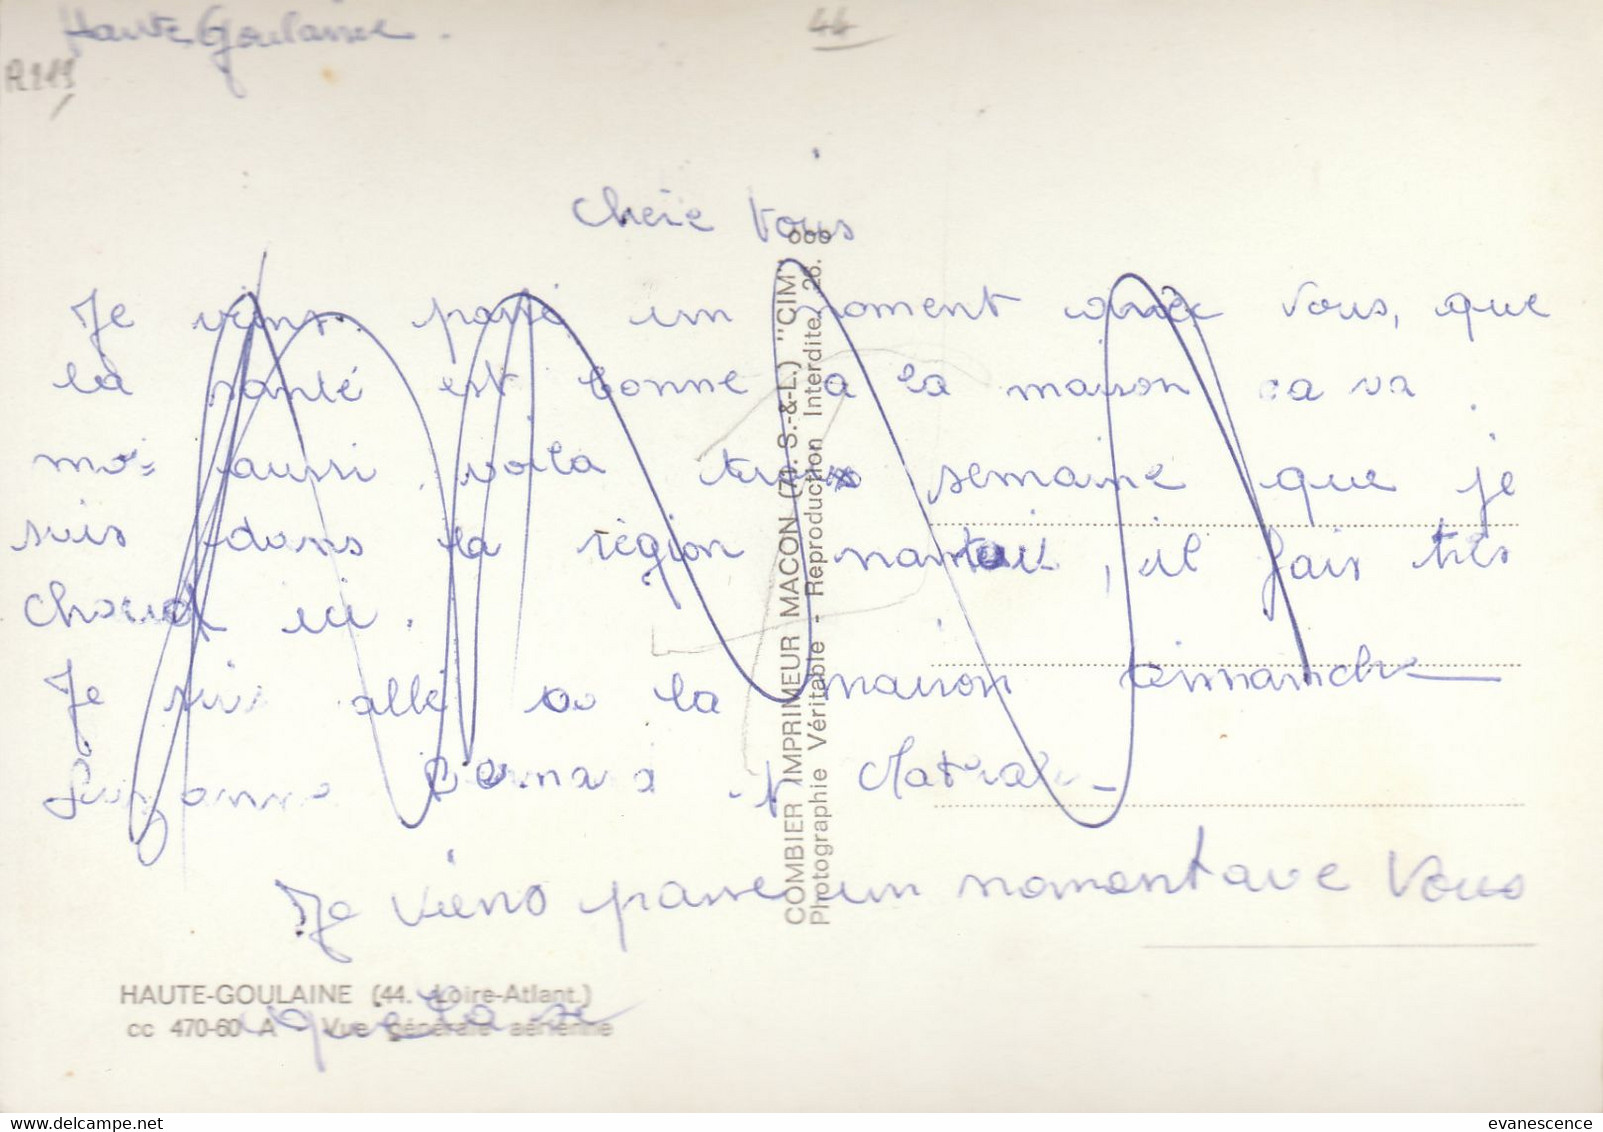 Haute Goulaine.
44
R119
cheie vous
Je viens passé un moment avec vous, que
la santé est bonne a la maison ca va
moi aussi voilà trois semaine que je
suis dans la région nantais, il fais très
chaud ici.
Je suis allé a la maison dimanche
Suzanne Bernard
Je viens passe un momentave Vous
que la
COMBIER IMPRIMEUR MACON (71. S.-&-L.) "CIM"
Photographie Véritable - Reproduction Interdite
HAUTE-GOULAINE (44. Loire-Atlant.)
cc 470-60 A Vue générale aérienne
evanescence